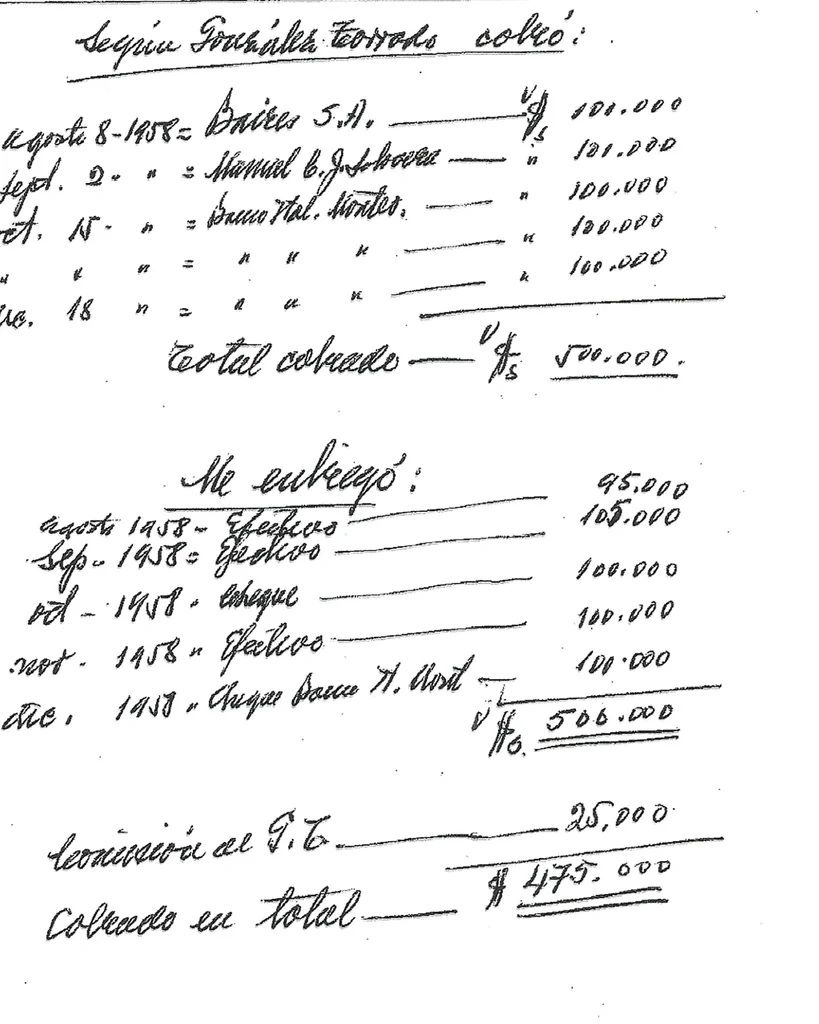 Según González Torrado cobró:
agosto 8-1958 = Baires S.A. — $ 100.000
sept. 2 - " = Manuel — " 100.000
oct. 15 - " = Banco Ital. Montev. — " 100.000
" " " = " " " — " 100.000
dic. 18 " = " " " — " 100.000
Total cobrado — $ 500.000.
Me entregó:
agosto 1958 - Efectivo — 95.000
sep - 1958 = Efectivo — 105.000
oct - 1958 - cheque — 100.000
nov - 1958 " Efectivo — 100.000
dic. 1958 " Cheque Banco — 100.000
$ 500.000
Comisión al G.T. — 25.000
Cobrado en total — $ 475.000